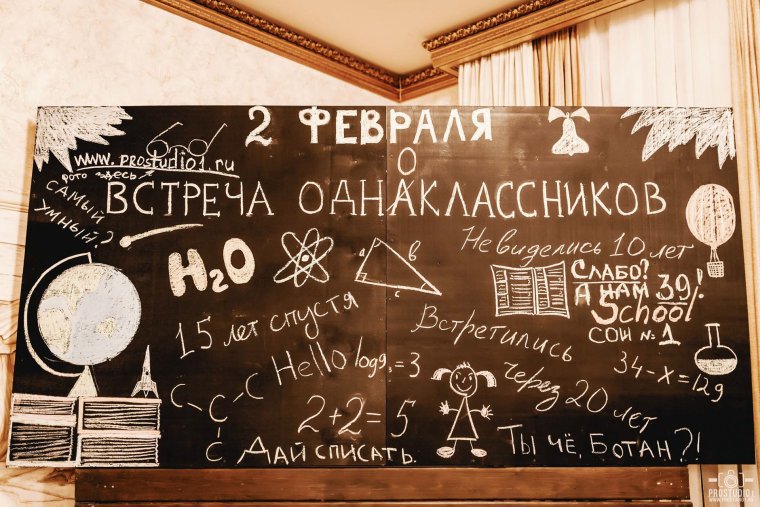 2 ФЕВРАЛЯ
www.prostudio1.ru
фото здесь
О
ВСТРЕЧА ОДНАКЛАССНИКОВ
САМЫЙ
УМНЫЙ?
H2O
a
b
c
Не виделись 10 лет
СЛАБО?
А НАМ 39!
School
СОШ №1
15 лет спустя
Встретились
через 20 лет
34-x=129
Hello
=3
C C C
C
2+2=5
ДАЙ СПИСАТЬ.
ТЫ ЧЁ, БОТАН?!
PROSTUDIO1
WWW.PROSTUDIO1.RU